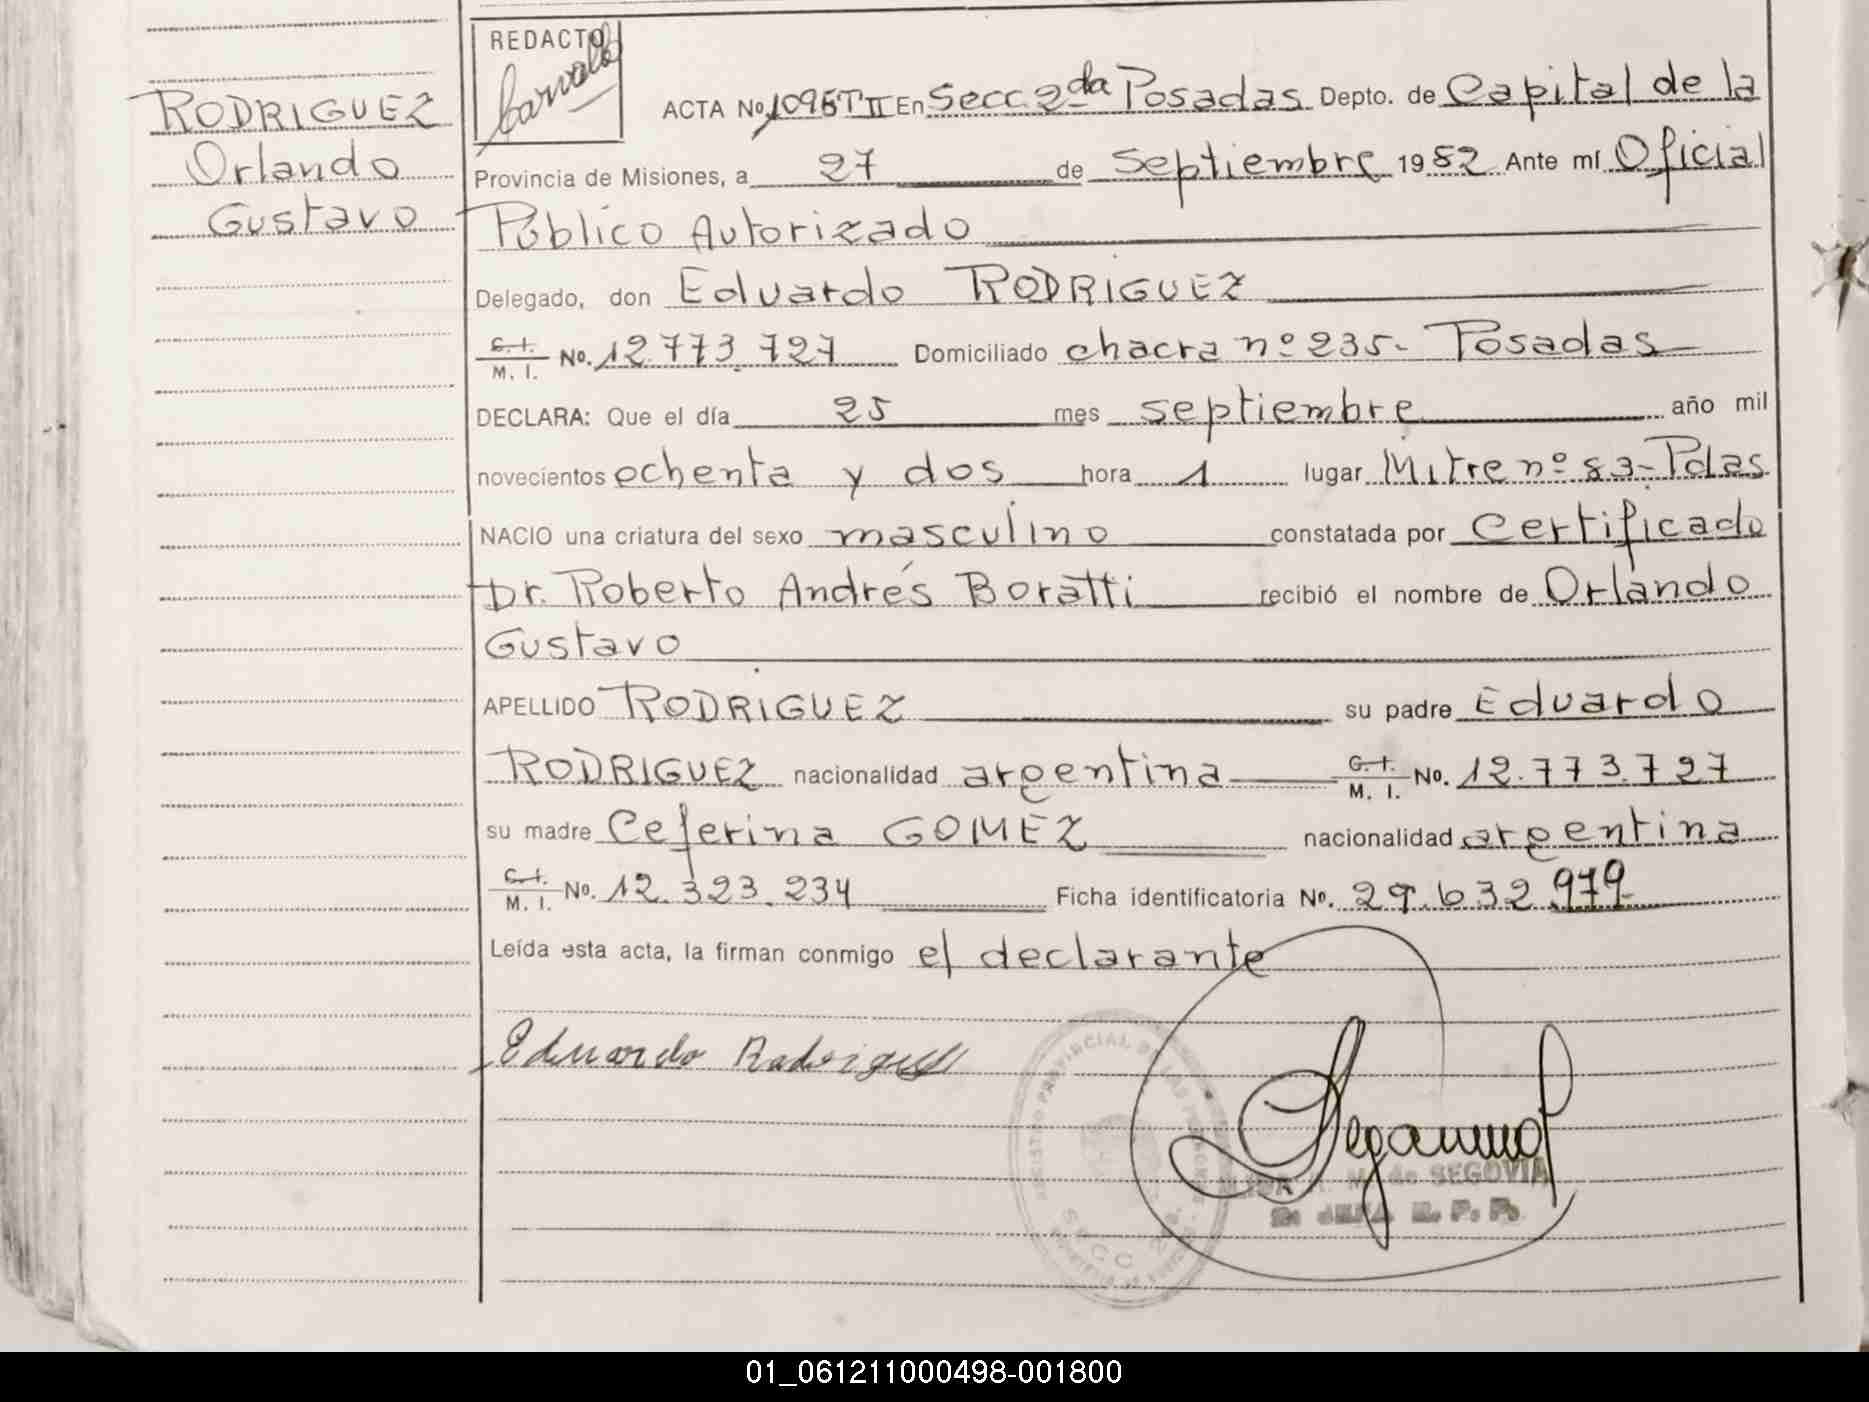 RODRIGUEZ
Orlando
Gustavo
REDACTO
Carvallo
ACTA No. 1096 T II En Secc. 2da Posadas Depto. de Capital de la
Provincia de Misiones, a 27 de septiembre 1982 Ante mí Oficial
Público Autorizado
Delegado, don Eduardo RODRIGUEZ
C. I. / M. I. No. 12.773.727 Domiciliado chacra nº 235- Posadas
DECLARA: Que el día 25 mes septiembre año mil
novecientos ochenta y dos hora 1 lugar Mitre nº 83-Pdas
NACIO una criatura del sexo masculino constatada por Certificado
Dr. Roberto Andrés Boratti recibió el nombre de Orlando
Gustavo
APELLIDO RODRIGUEZ su padre Eduardo
RODRIGUEZ nacionalidad argentina C. I. / M. I. No. 12.773.727
su madre Ceferina GOMEZ nacionalidad argentina
C. I. / M. I. No. 12.323.234 Ficha identificatoria No. 29.632.979
Leída esta acta, la firman conmigo el declarante
Eduardo Rodriguez
REGISTRO PROVINCIAL DE LAS PERSONAS
SECC 2
M. de SEGOVIA
JEFA R. P. P.
01_061211000498-001800